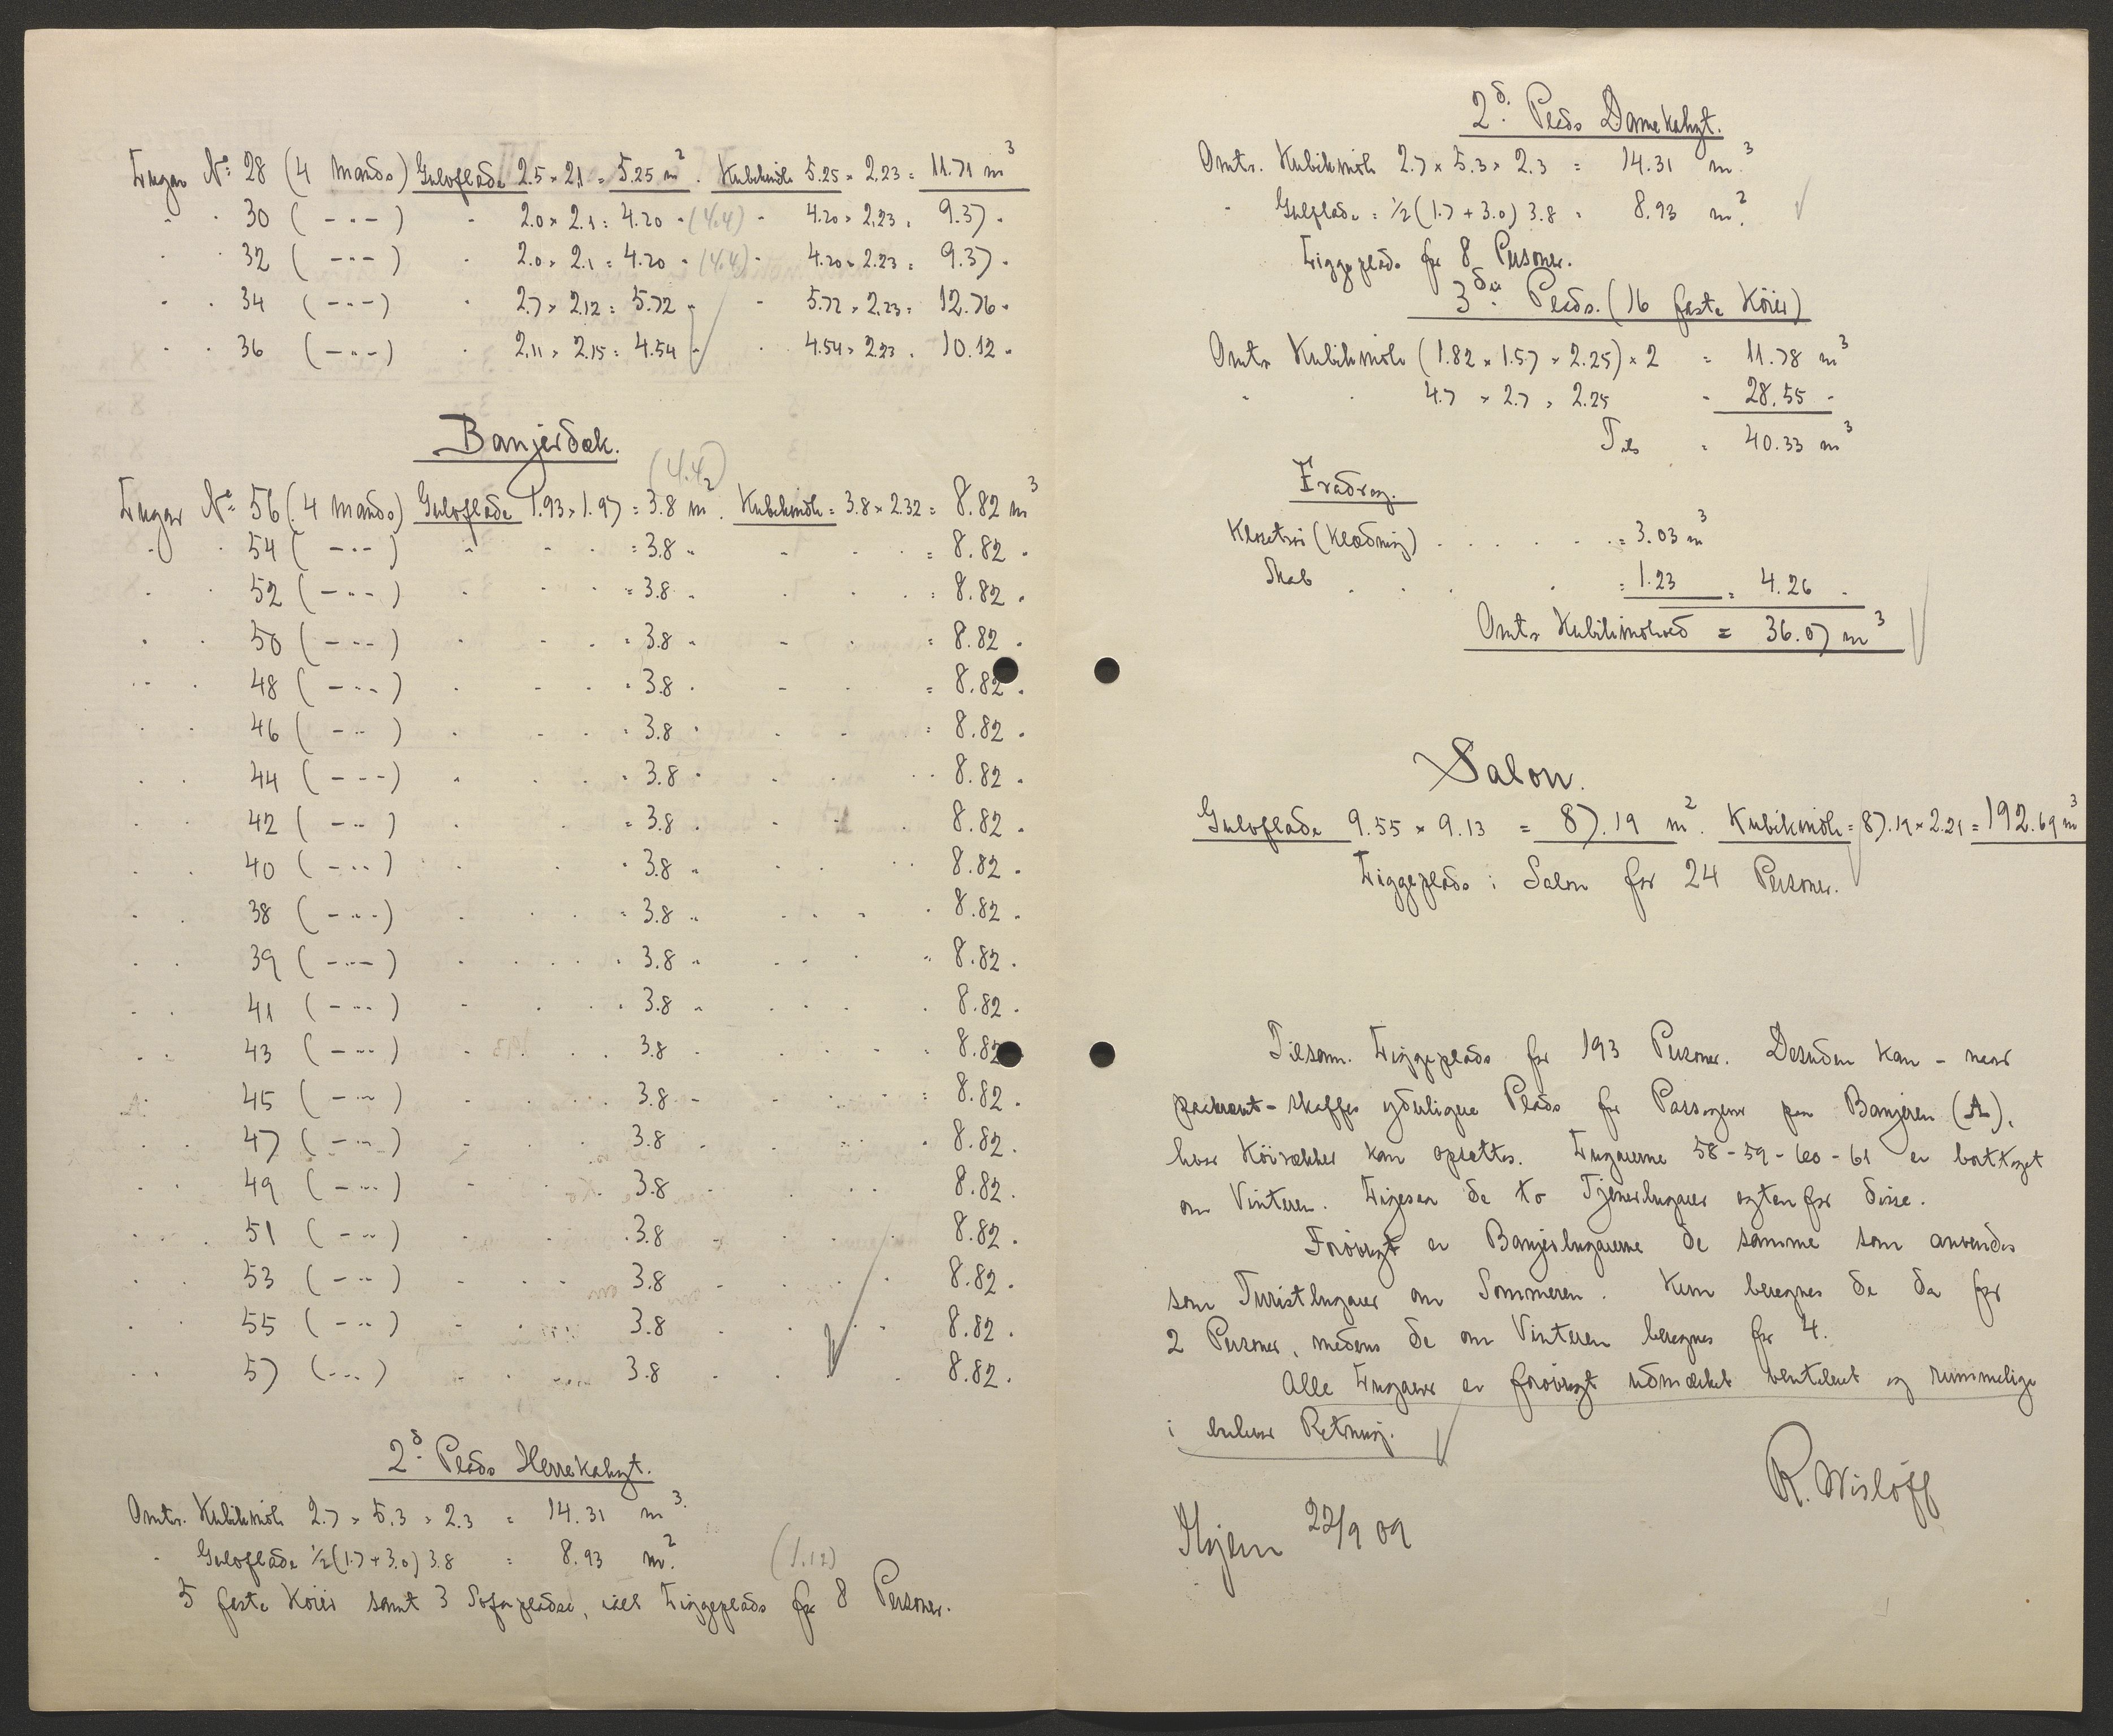 Lugar No 28 (4 Mands) Gulvflade 2.5 × 2.1 = 5.25 m². Kubikindh. 5.25 × 2.23 = 11.71 m³
" " 30 ( - " - ) " 2.0 × 2.1 = 4.20 " (4.4) " 4.20 × 2.23 = 9.37 "
" " 32 ( - " - ) " 2.0 × 2.1 = 4.20 " (4.4) " 4.20 × 2.23 = 9.37 "
" " 34 ( - " - ) " 2.7 × 2.12 = 5.72 " " 5.72 × 2.23 = 12.76 "
" " 36 ( - " - ) " 2.11 × 2.15 = 4.54 " " 4.54 × 2.23 = 10.12 "
Banjerdæk.
(4.4)
Lugar No 56 (4 Mands) Gulvflade 1.93 × 1.97 = 3.8 m². Kubikindh = 3.8 × 2.32 = 8.82 m³
" " 54 ( - " - ) " " " = 3.8 " " " " = 8.82 "
" " 52 ( - " - ) " " " = 3.8 " " " " = 8.82 "
" " 50 ( - " - ) " " " = 3.8 " " " " = 8.82 "
" " 48 ( - " - ) " " " = 3.8 " " " = 8.82 "
" " 46 ( - " - ) " " " = 3.8 " " " = 8.82 "
" " 44 ( - " - ) " " " = 3.8 " " " " 8.82 "
" " 42 ( - " - ) " " = 3.8 " " " 8.82 "
" " 40 ( - " - ) " " " 3.8 " " " " 8.82 "
" " 38 ( - " - ) " " " = 3.8 " " " " 8.82 "
" " 39 ( - " - ) " " " " 3.8 " " " " 8.82 "
" " 41 ( - " - ) " " " " 3.8 " " " " 8.82 "
" " 43 ( - " - ) " " " 3.8 " " " " 8.82 "
" " 45 ( - " - ) " " " 3.8 " " " " = 8.82 "
" " 47 ( - " - ) " " " 3.8 " " " " 8.82 "
" " 49 ( - " - ) " " " 3.8 " " " 8.82 "
" " 51 ( - " - ) " " " 3.8 " " " 8.82 "
" " 53 ( - " - ) " " " 3.8 " " " 8.82 "
" " 55 ( - " - ) " " " 3.8 " " " 8.82 "
" " 57 ( - " - ) " " " 3.8 " " " 8.82 "
2d. Plads Herrekahyt.
Omtr. Kubikindh 2.7 × 5.3 × 2.3 = 14.31 m³.
" Gulvflade ½(1.7 + 3.0) 3.8 = 8.93 m². (1.12)
5 faste Köier samt 3 Sofapladse, ialt Liggeplads for 8 Personer.
2d. Plads Damekahyt.
Omtr. Kubikindh 2.7 × 5.3 × 2.3 = 14.31 m³
" Gulflade = ½(1.7 + 3.0) 3.8 = 8.93 m².
Liggeplads for 8 Personer.
3die Plads. (16 faste Köier)
Omtr Kubikindh (1.82 × 1.57 × 2.25) × 2 = 11.78 m³
" " 4.7 × 2.7 × 2.25 " 28.55 "
Tils = 40.33 m³
Fradrag.
Klosetrör (Klædning) . . . . . = 3.03 m³
Skab . . . . = 1.23 = 4.26 "
Omtr Kubikindhold = 36.07 m³
Salon.
Gulvflade 9.55 × 9.13 = 87.19 m². Kubikindh = 87.19 × 2.21 = 192.69 m³
Liggeplads i Salon for 24 Personer.
Tilsam. Liggeplads for 193 Personer. Desuden kan - naar
paakrævet - skaffes yderligere Plads for Passagerer paa Banjeren (A),
hvor Köirækker kan opsættes. Lugarerne 58 - 59 - 60 - 61 er borttaget
om Vinteren. Ligesaa de to Tjenerlugarer agtenfor disse.
Forövrigt er Banjerlugarerne de samme som anvendes
som Turistlugarer om Sommeren. Kun beregnes de da for
2 Personer, medens de om Vinteren beregnes for 4.
Alle Lugarer er forövrigt udmærket ventileret og rummelige
i enhver Retning.
R. Wislöff
Hjem 22/9 09